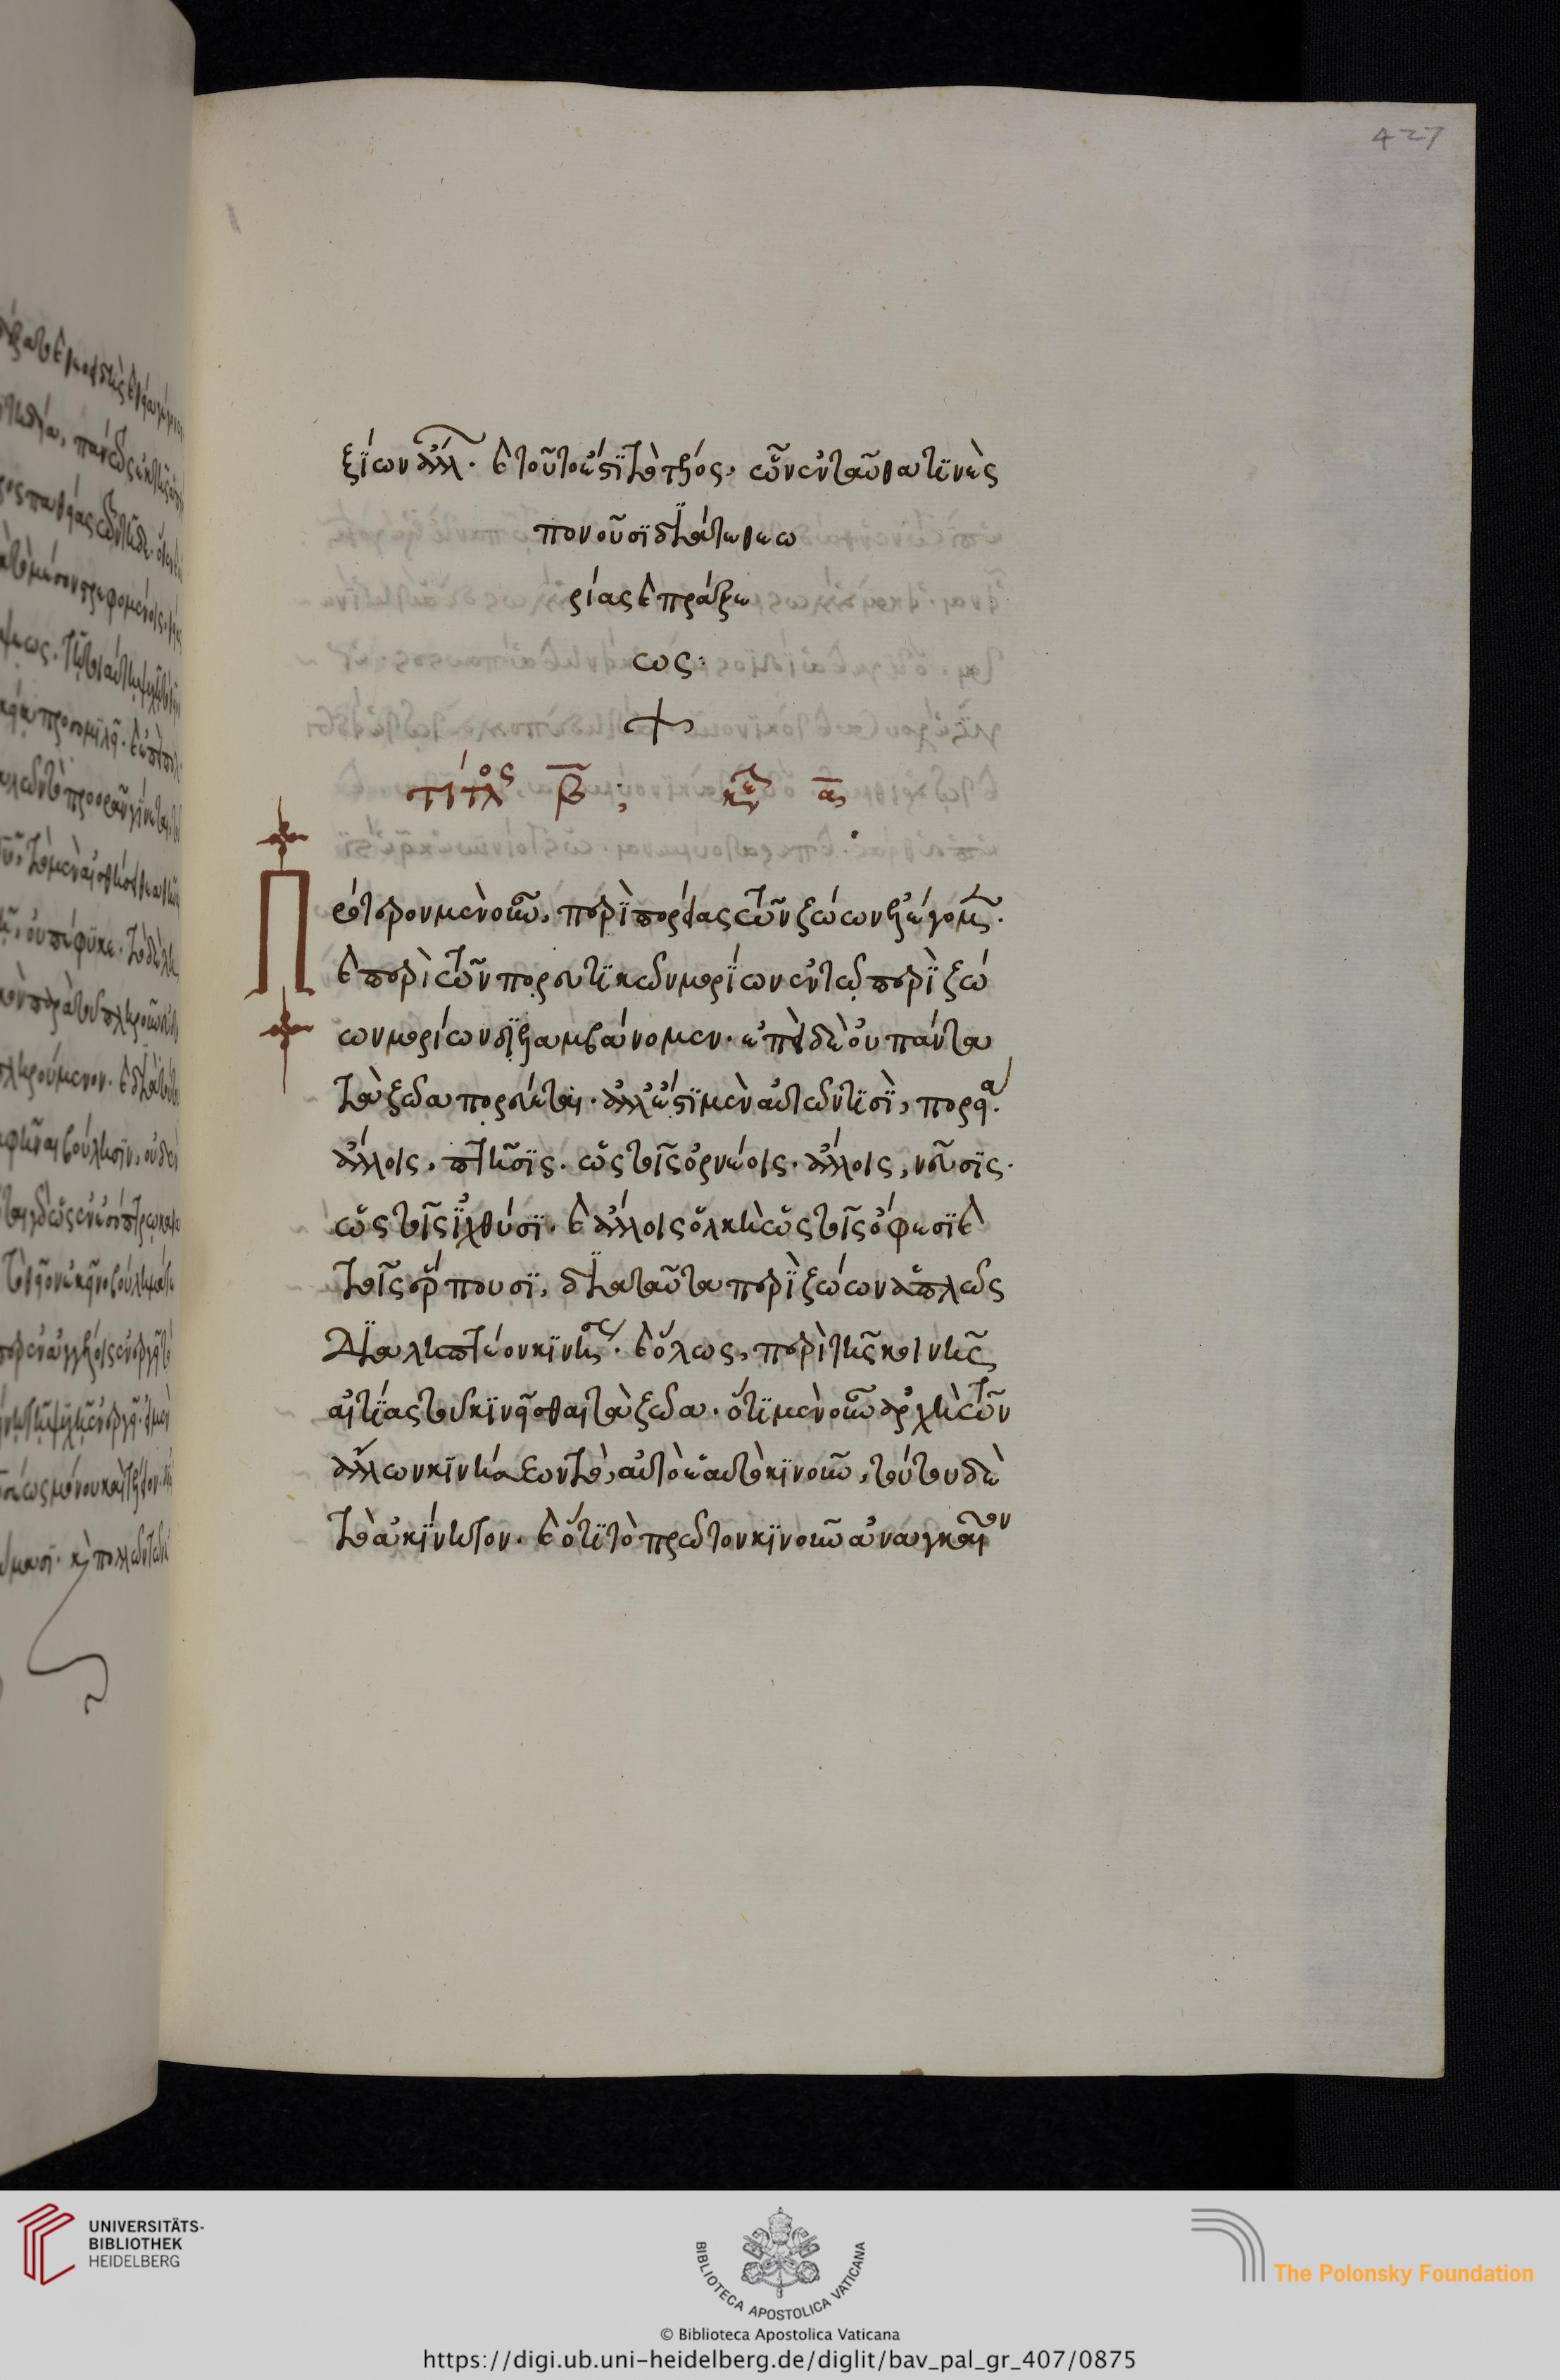 427
ξίων ἀλλ. καὶ τοῦτο ἐστὶ τὸ τέλος. ὧν ἐνταῦθα τινὲς
πονοῦσι διά τε θεω
ρίας καὶ πράξε
ως:
+
τίτλος β̅ : κεφ. α̅
Πρότερον μὲν οὖν, περὶ πορείας τῶν ζώων ἐλέγομεν.
καὶ περὶ τῶν πορευτικῶν μορίων ἐν τῶ περὶ ζώ
ων μορίων διελαμβάνομεν. ἐπεὶ δὲ οὐ πάντα
τὰ ζῶα πορεύεται. ἀλλ' ἔστι μὲν αὐτῶν τισὶ, πορεία.
ἄλλοις, πτῆσις. ὡς τοῖς ὀρνέοις. ἄλλοις, νεῦσις.
ὡς τοῖς ἰχθύσι. καὶ ἄλλοις ὁλκὴ ὡς τοῖς ὄφεσι καὶ
τοῖς ἕρπουσι, διὰ ταῦτα περὶ ζώων ἁπλῶς
διαληπτέον κινήσεως. καὶ ὅλως, περὶ τῆς κοινῆς
αἰτίας τοῦ κινεῖσθαι τὰ ζῶα. ὅτι μὲν οὖν ἀρχὴ τῶν
ἄλλων κινήσεων τὸ, αὐτὸ ἑαυτὸ κινοῦν, τούτου δὲ
τὸ ἀκίνητον. καὶ ὅτι τὸ πρῶτον κινοῦν ἀναγκαῖον
UNIVERSITÄTS-
BIBLIOTHEK
HEIDELBERG
BIBLIOTECA APOSTOLICA VATICANA
The Polonsky Foundation
© Biblioteca Apostolica Vaticana
https://digi.ub.uni-heidelberg.de/diglit/bav_pal_gr_407/0875